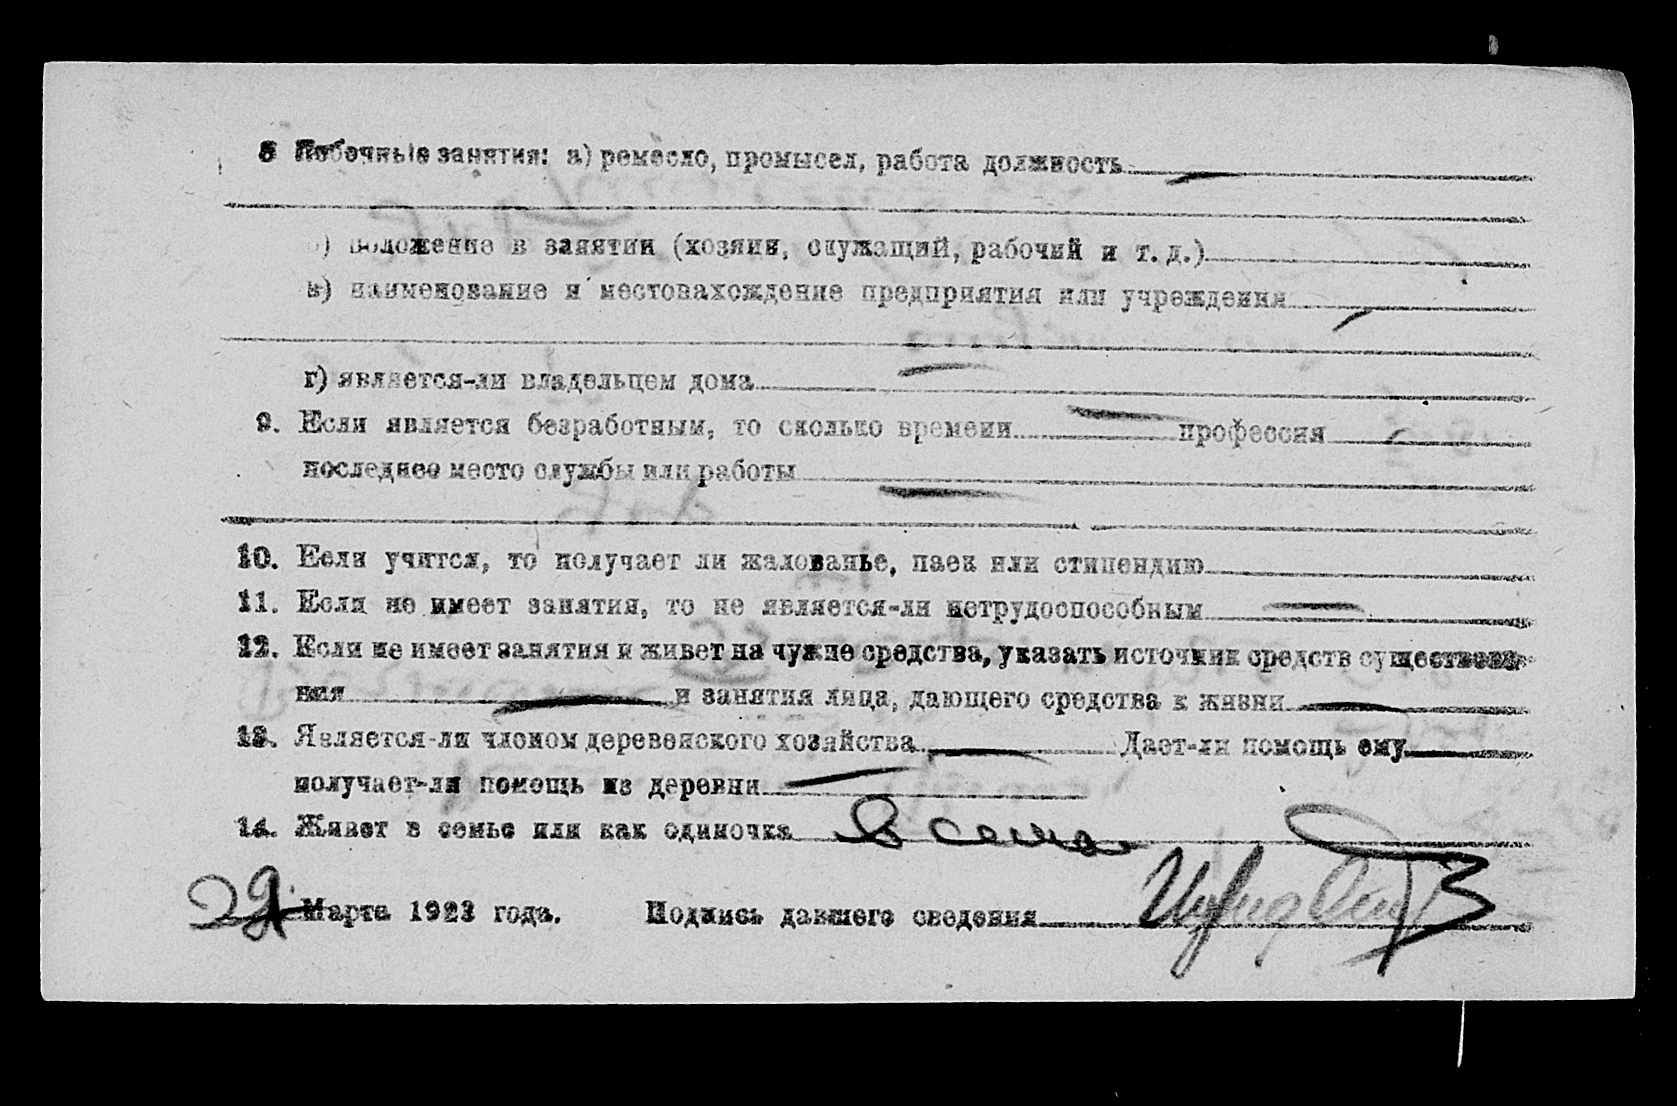 8 Побочные занятия: а) ремесло, промысел, работа должность
б) положение в занятии (хозяин, служащий, рабочий и т. д.)
в) наименование и местонахождение предприятия или учреждения
г) является-ли владельцем дома
9. Если является безработным, то сколько времени профессия
последнее место службы или работы
10. Если учится, то получает ли жалованье, паек или стипендию
11. Если не имеет занятия, то не является-ли нетрудоспособным
12. Если не имеет занятия и живет на чужие средства, указать источник средств существова-
ния и занятия лица, дающего средства к жизни
13. Является-ли членом деревенского хозяйства Дает-ли помощь ему
получает-ли помощь из деревни
14. Живет в семье или как одиночка в семье
29 Марта 1923 года. Подпись давшего сведения